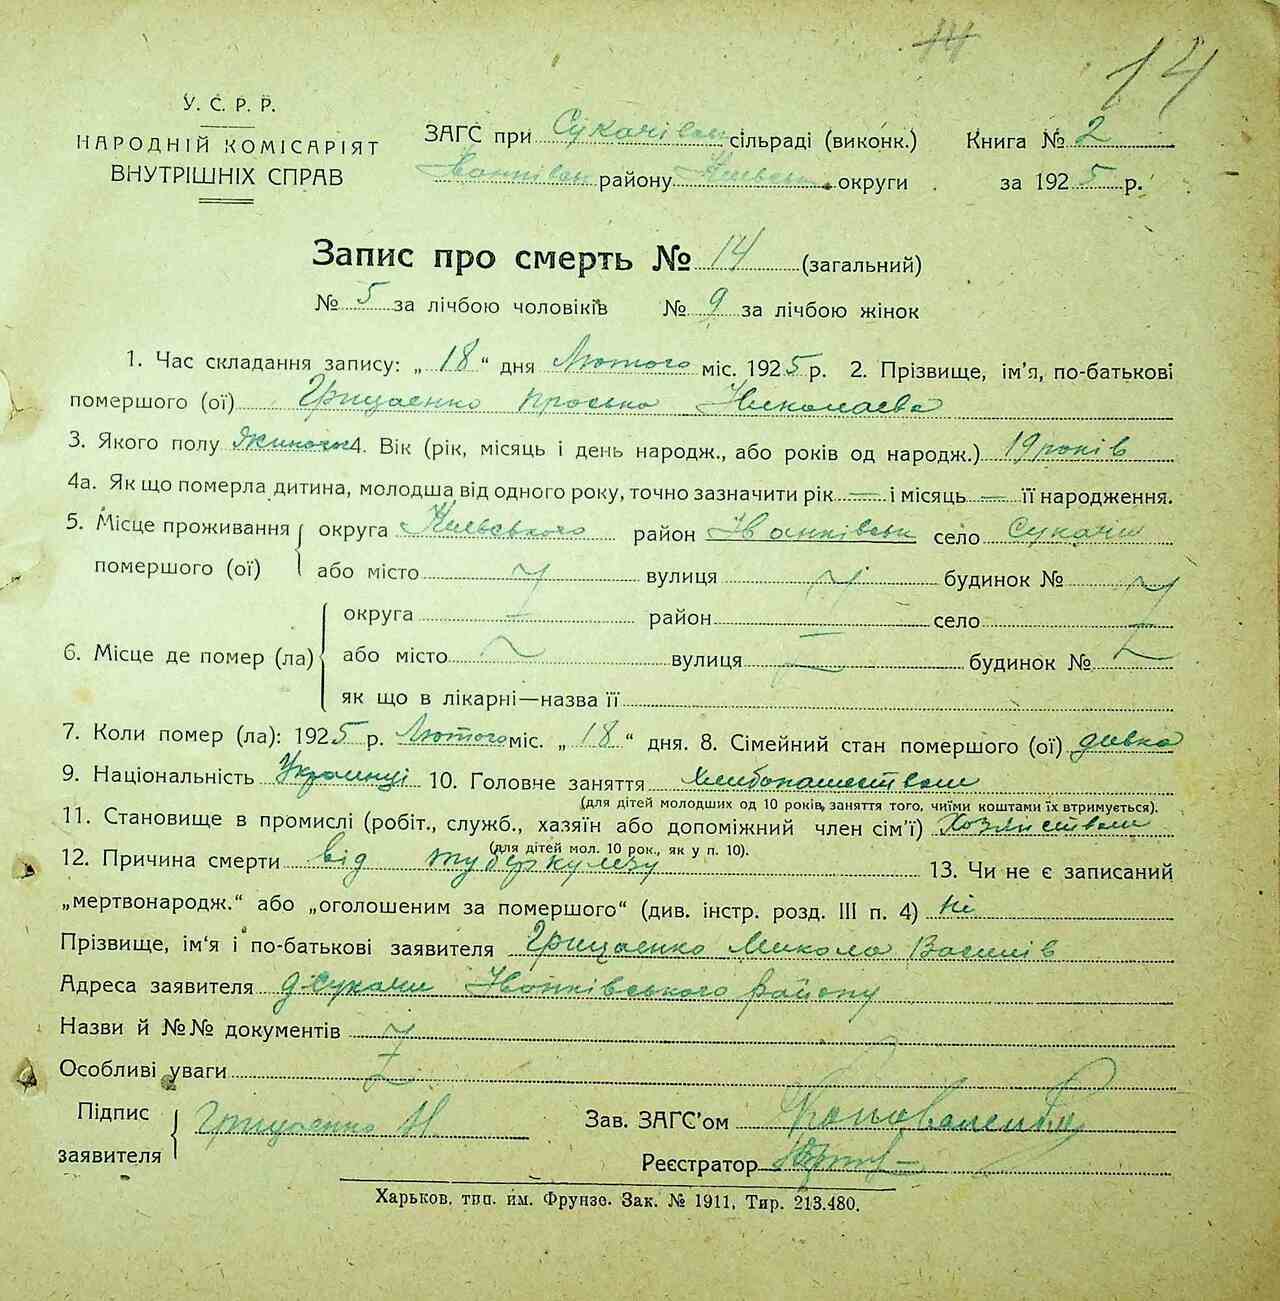 14
14
У. С. Р. Р.
НАРОДНІЙ КОМІСАРІЯТ
ВНУТРІШНІХ СПРАВ
ЗАГС при Сукачівськ сільраді (виконк.) Книга № 2
Іванківськ району Киевськ округи за 1925 р.
Запис про смерть № 14 (загальний)
№ 5 за лічбою чоловіків № 9 за лічбою жінок
1. Час складання запису: „18“ дня Лютого міс. 1925 р. 2. Прізвище, ім'я, по-батькові
помершого (ої) Грицаенко Проська Николаева
3. Якого полу жиночи 4. Вік (рік, місяць і день народж., або років од народж.) 19 років
4а. Як що померла дитина, молодша від одного року, точно зазначити рік — і місяць — її народження.
5. Місце проживання округа Киевського район Іванківськ село Сукачи
помершого (ої) або місто вулиця будинок №
округа район село
6. Місце де помер (ла) або місто вулиця будинок №
як що в лікарні—назва її
7. Коли помер (ла): 1925 р. Лютого міс. „18“ дня. 8. Сімейний стан помершого (ої) дивка
9. Національність Украинці 10. Головне заняття Хлибопашеством
(для дітей молодших од 10 років, заняття того, чиїми коштами їх втримується).
11. Становище в промислі (робіт., служб., хазяїн або допоміжний член сім'ї) Хозяйством
(для дітей мол. 10 рок., як у п. 10).
12. Причина смерти від туберкулезу 13. Чи не є записаний
„мертвонародж.“ або „оголошеним за помершого“ (див. інстр. розд. III п. 4) Ні
Прізвище, ім'я і по-батькові заявителя Грицаенко Микола Василів
Адреса заявителя д. Сукачи Іванківського району
Назви й №№ документів
Особливі уваги
Підпис заявителя Грицаенко Н.
Зав. ЗАГС'ом Коноваленко
Реєстратор
Харьков, тип. им. Фрунзе. Зак. № 1911, Тир. 213.480.